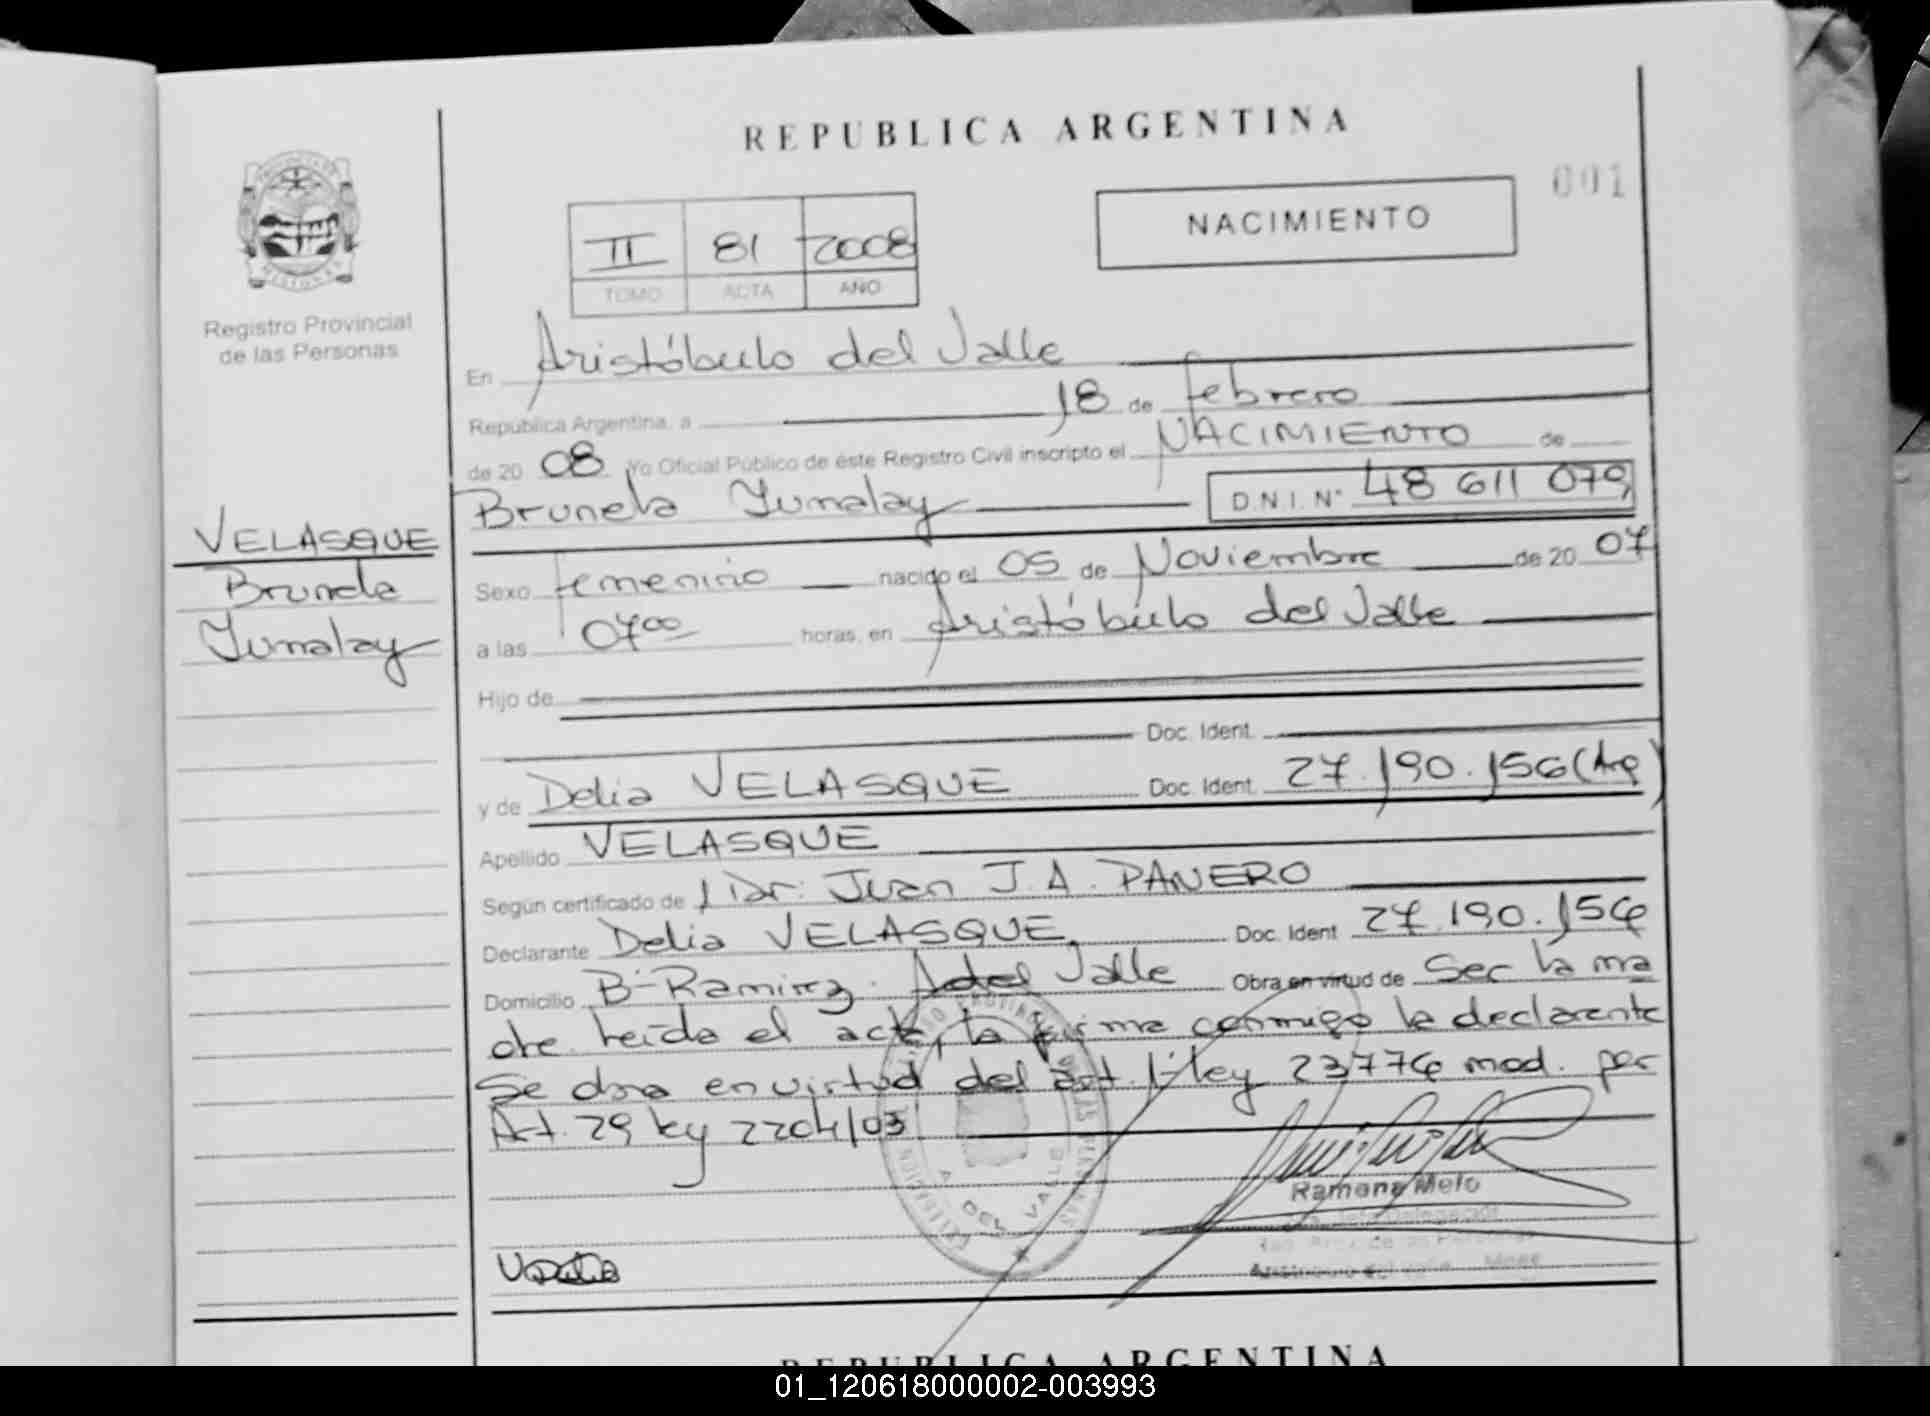 REPUBLICA ARGENTINA
001
NACIMIENTO
II 81 2008
TOMO ACTA AÑO
Registro Provincial
de las Personas
En Aristóbulo del Valle
República Argentina, a 18 de febrero
de 20 08 Yo Oficial Público de éste Registro Civil inscripto el NACIMIENTO de
Brunela Yumalay D.N.I. N° 48 611 079
VELASQUE
Brunela
Yumalay
Sexo femenino nacido el 05 de Noviembre de 20 07
a las 07°° horas, en Aristóbulo del Valle
Hijo de
Doc. Ident.
y de Delia VELASQUE Doc. Ident. 27.190.156 (Arg)
Apellido VELASQUE
Según certificado de Dr. Juan J. A. PANERO
Declarante Delia VELASQUE, Doc. Ident 27.190.156
Domicilio B° Ramirez. A del Valle Obra en virtud de Ser la ma
dre. Leída el acta, la firma conmigo la declarante
Se dna en virtud del art. 1° ley 23776 mod. por
Art. 29 ley 2204/03
REGISTRO PROVINCIAL DE LAS PERSONAS
DELEGACION
A DEL VALLE
Ramona Melo
Jefe Delegación
Reg. Prov. de las Personas
Aristóbulo del Valle Mnes
REPUBLICA ARGENTINA
01_120618000002-003993